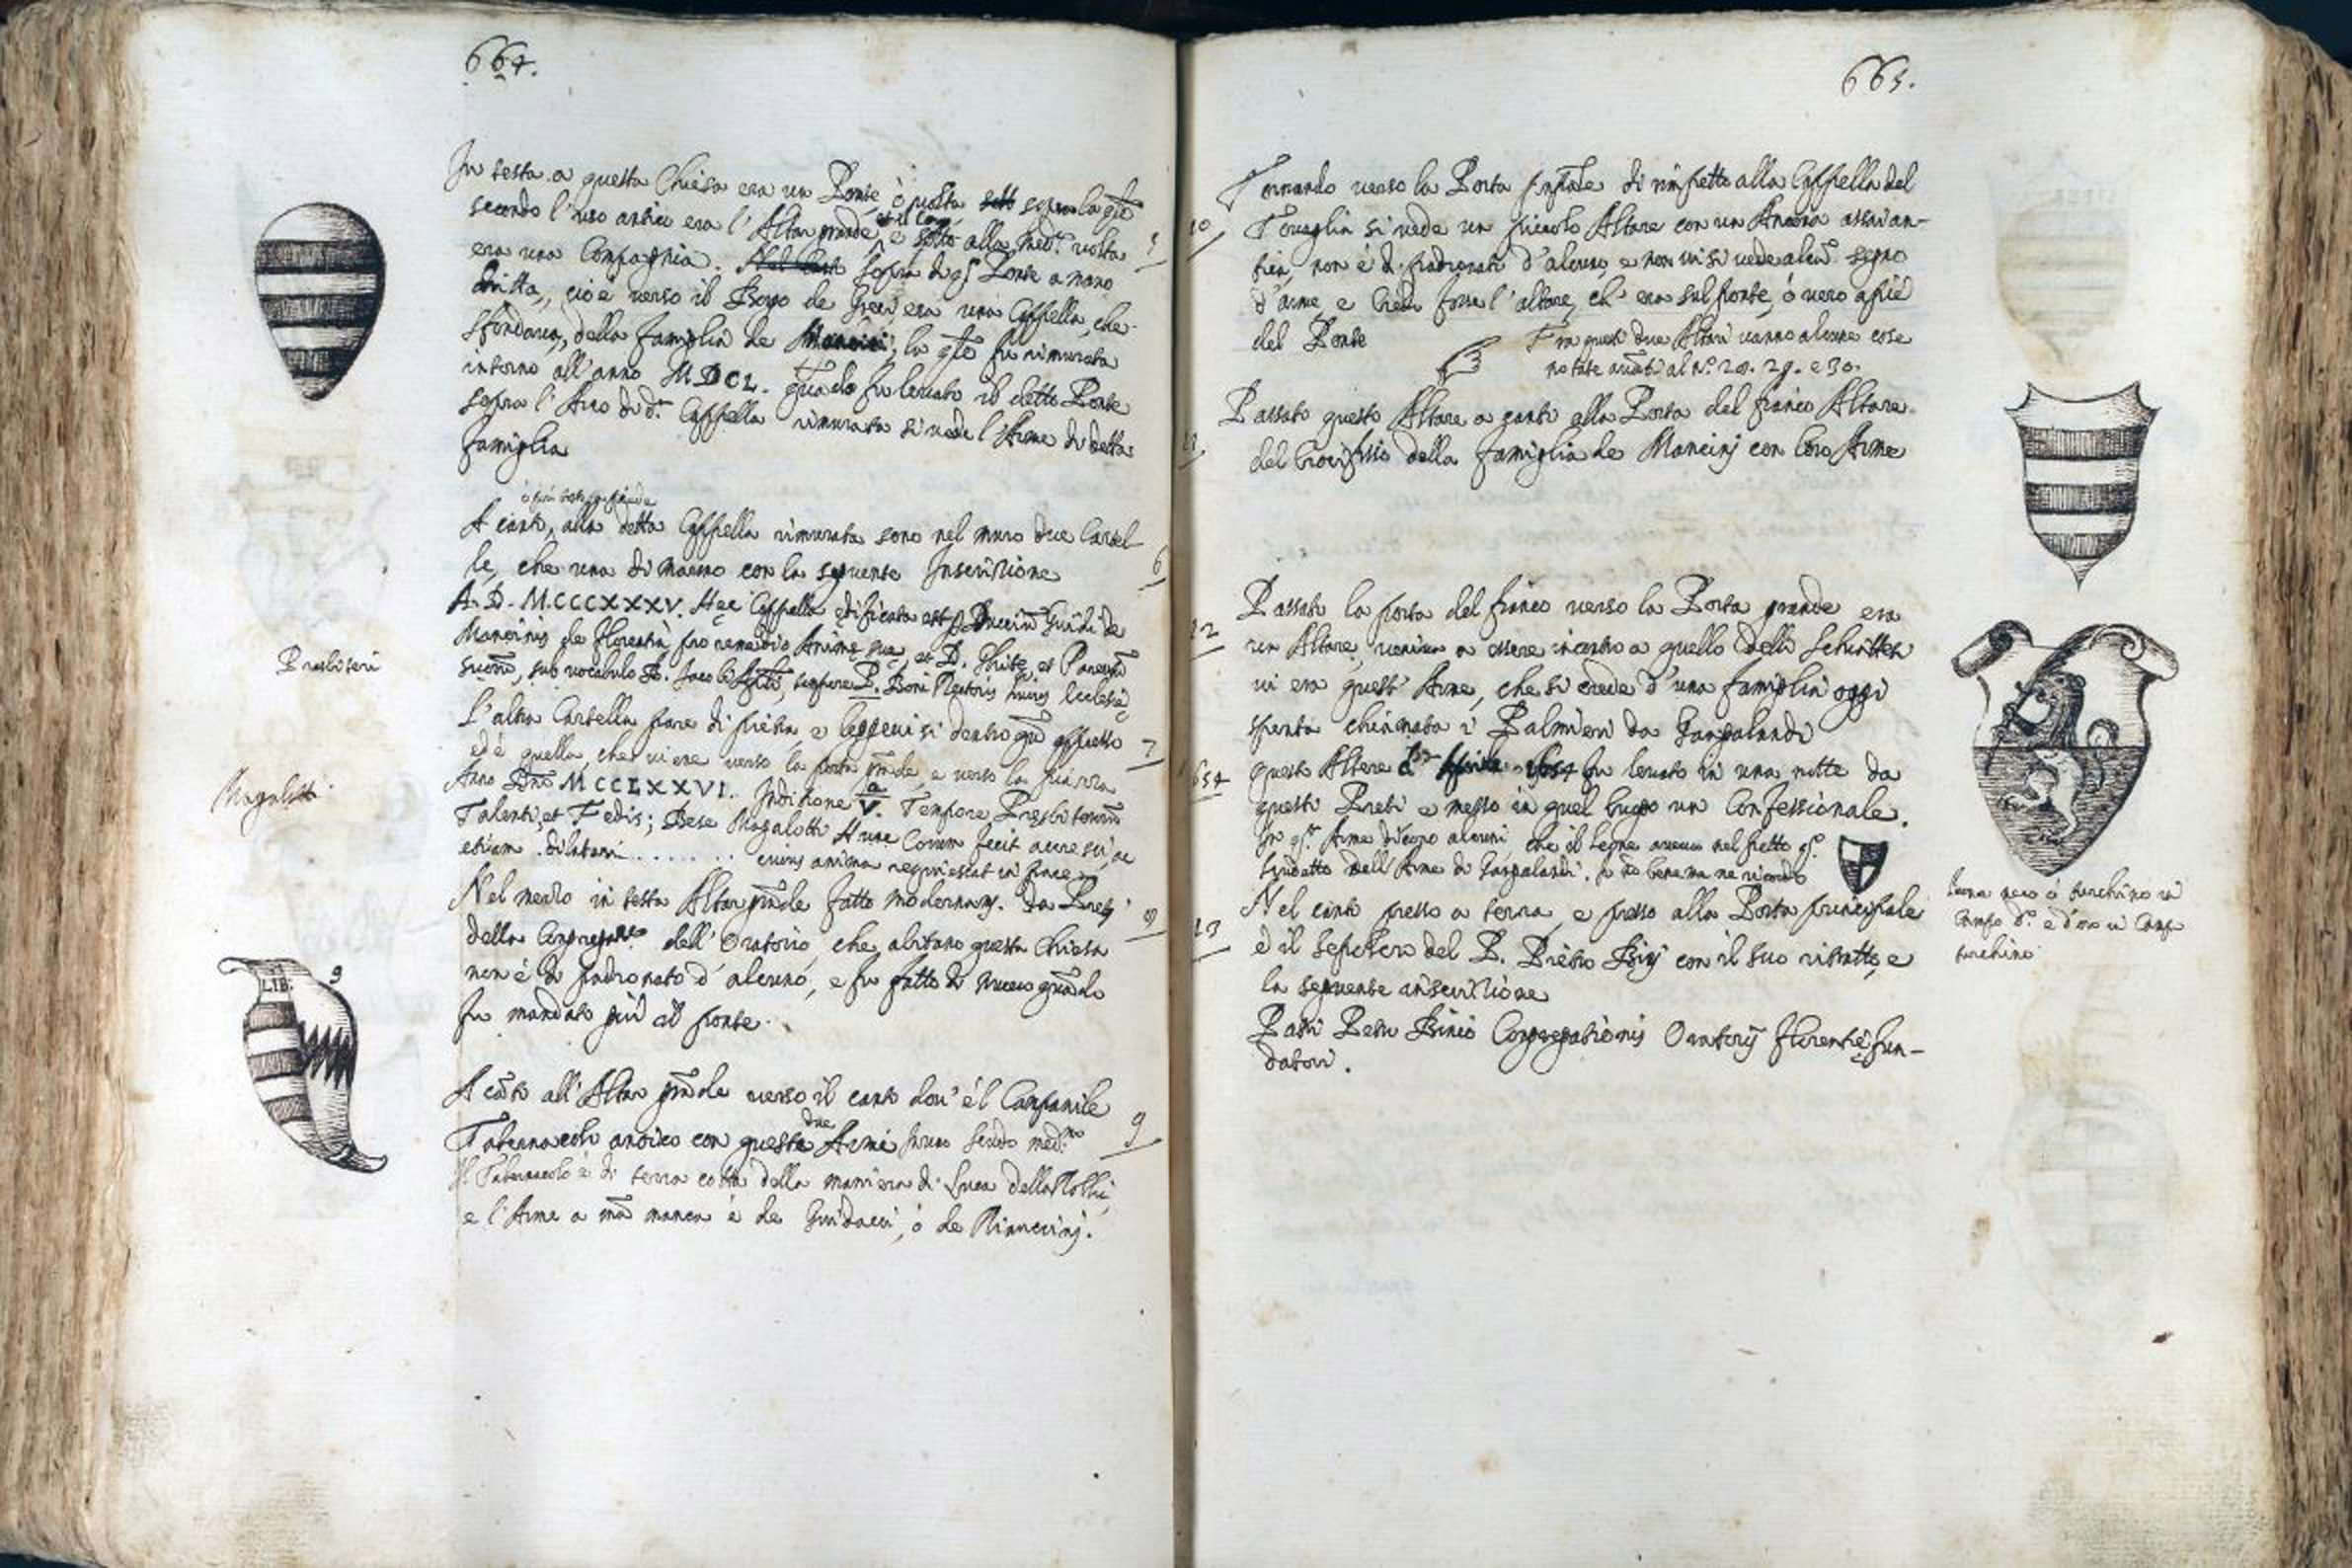 664.
In testa a questa Chiesa era un Ponte, ò volta sopra la qle
secondo l'uso antico era l'Altar grande, e sotto alla med.ª volta
et il Coro
5
era una Compagnia. Sopra di qs Ponte a mano
dritta, cioè verso il Borgo de Greci, era una Cappella, che
sfondava, della famiglia de Mancini, la qle fu rimurata
intorno all'anno MDCL. quado fu levato il detto Ponte
sopra l'Arco di d.ª Cappella rimurata si vede l'Arme di detta
famiglia
A canto, alla detta Cappella rimurata sono nel muro due Cartel
le, che una di marmo con la seguente Inscrizione
6
A. D. MCCCXXXV. Hec Cappella edificata est Guidi de
Mancinis de Florentia pro remedio Anime sue, et D. et Parentũ
suorũ, sub vocabulo S. Jacobi tempore P. Boni Rectoris huius Ecclesie
Presbiteri
L'altra Cartella pare di pietra, e leggevisi dentro qũ appresso
7
ed è quella, che viene verso la porta grãde, e verso la piazza
Anno Dñi MCCLXXVI. Inditione V.ª Tempore Presbiterorũ
Talenti, et Fedis; Bese Magalotti Hunc Corum fecit accresci, ac
Magalotti
etiam dilatari ........ cuius anima requiescat in pace
Nel mezzo in testa Altar grãde fatto modernam. da Preti
8
della Congregaz.ne dell'Oratorio, che abitano questa Chiesa
non è di padronato d'alcuno, e fu fatto di nuovo quãdo
fu mandato giù il ponte.
LIB. 9
A cãto all'Altar grãde verso il canto dov'è l Campanile
Tabernacolo antico con queste due Armi in uno scudo med.mo
9
Il Tabernacolo è di terra cotta della maniera di Luca della Robbia,
e l'Arme a mã manca è de Guidacci, ò de Mancini.
665.
Tornando verso la Porta di rinpetto alla Cappella del
10
Tovaglia si vede un piccolo Altare con un Ancona assai an-
tica, non è di padronato d'alcuno, e non vi si vede alcũ segno
d'arme, e credo fosse l'altare, ch'era sul ponte, ò vero a piè
del Ponte
Tra questi due Altari vanno alcune cose
notate avãti al Nº 28. 29. e 30.
Passato questo Altare a canto alla Porta del fianco Altare
11
del Crocifisso della famiglia de Mancinj con loro Arme
Passato la porta del fianco verso la Porta grande era
12
un Altare, veniva a essere incontro a quello delli Schiattesi
vi era quest'Arme, che si crede d'una famiglia oggi
spenta chiamata i Palmieri da Gangalandi
1654
questo Altare 1654 fu levato in una notte da
questi Preti e messo in quel luogo un Confessionale.
In qs.ª Arme dicono alcuni che il Leone avesse nel petto qs.º
scudetto dell'Arme di Gangalandi. e nõ bene me ne ricordo
Leone nero ò turchino in
Campo d'. e d'oro in Campo
turchino
Nel canto presso a terra, e presso alla Porta principale
13
è il sepolcro del P. Pietro Binj con il suo ritratto, e
la seguente inscrizione
Patri Petro Binio Congregationis Oratorij Florentiẹ fun-
datori.